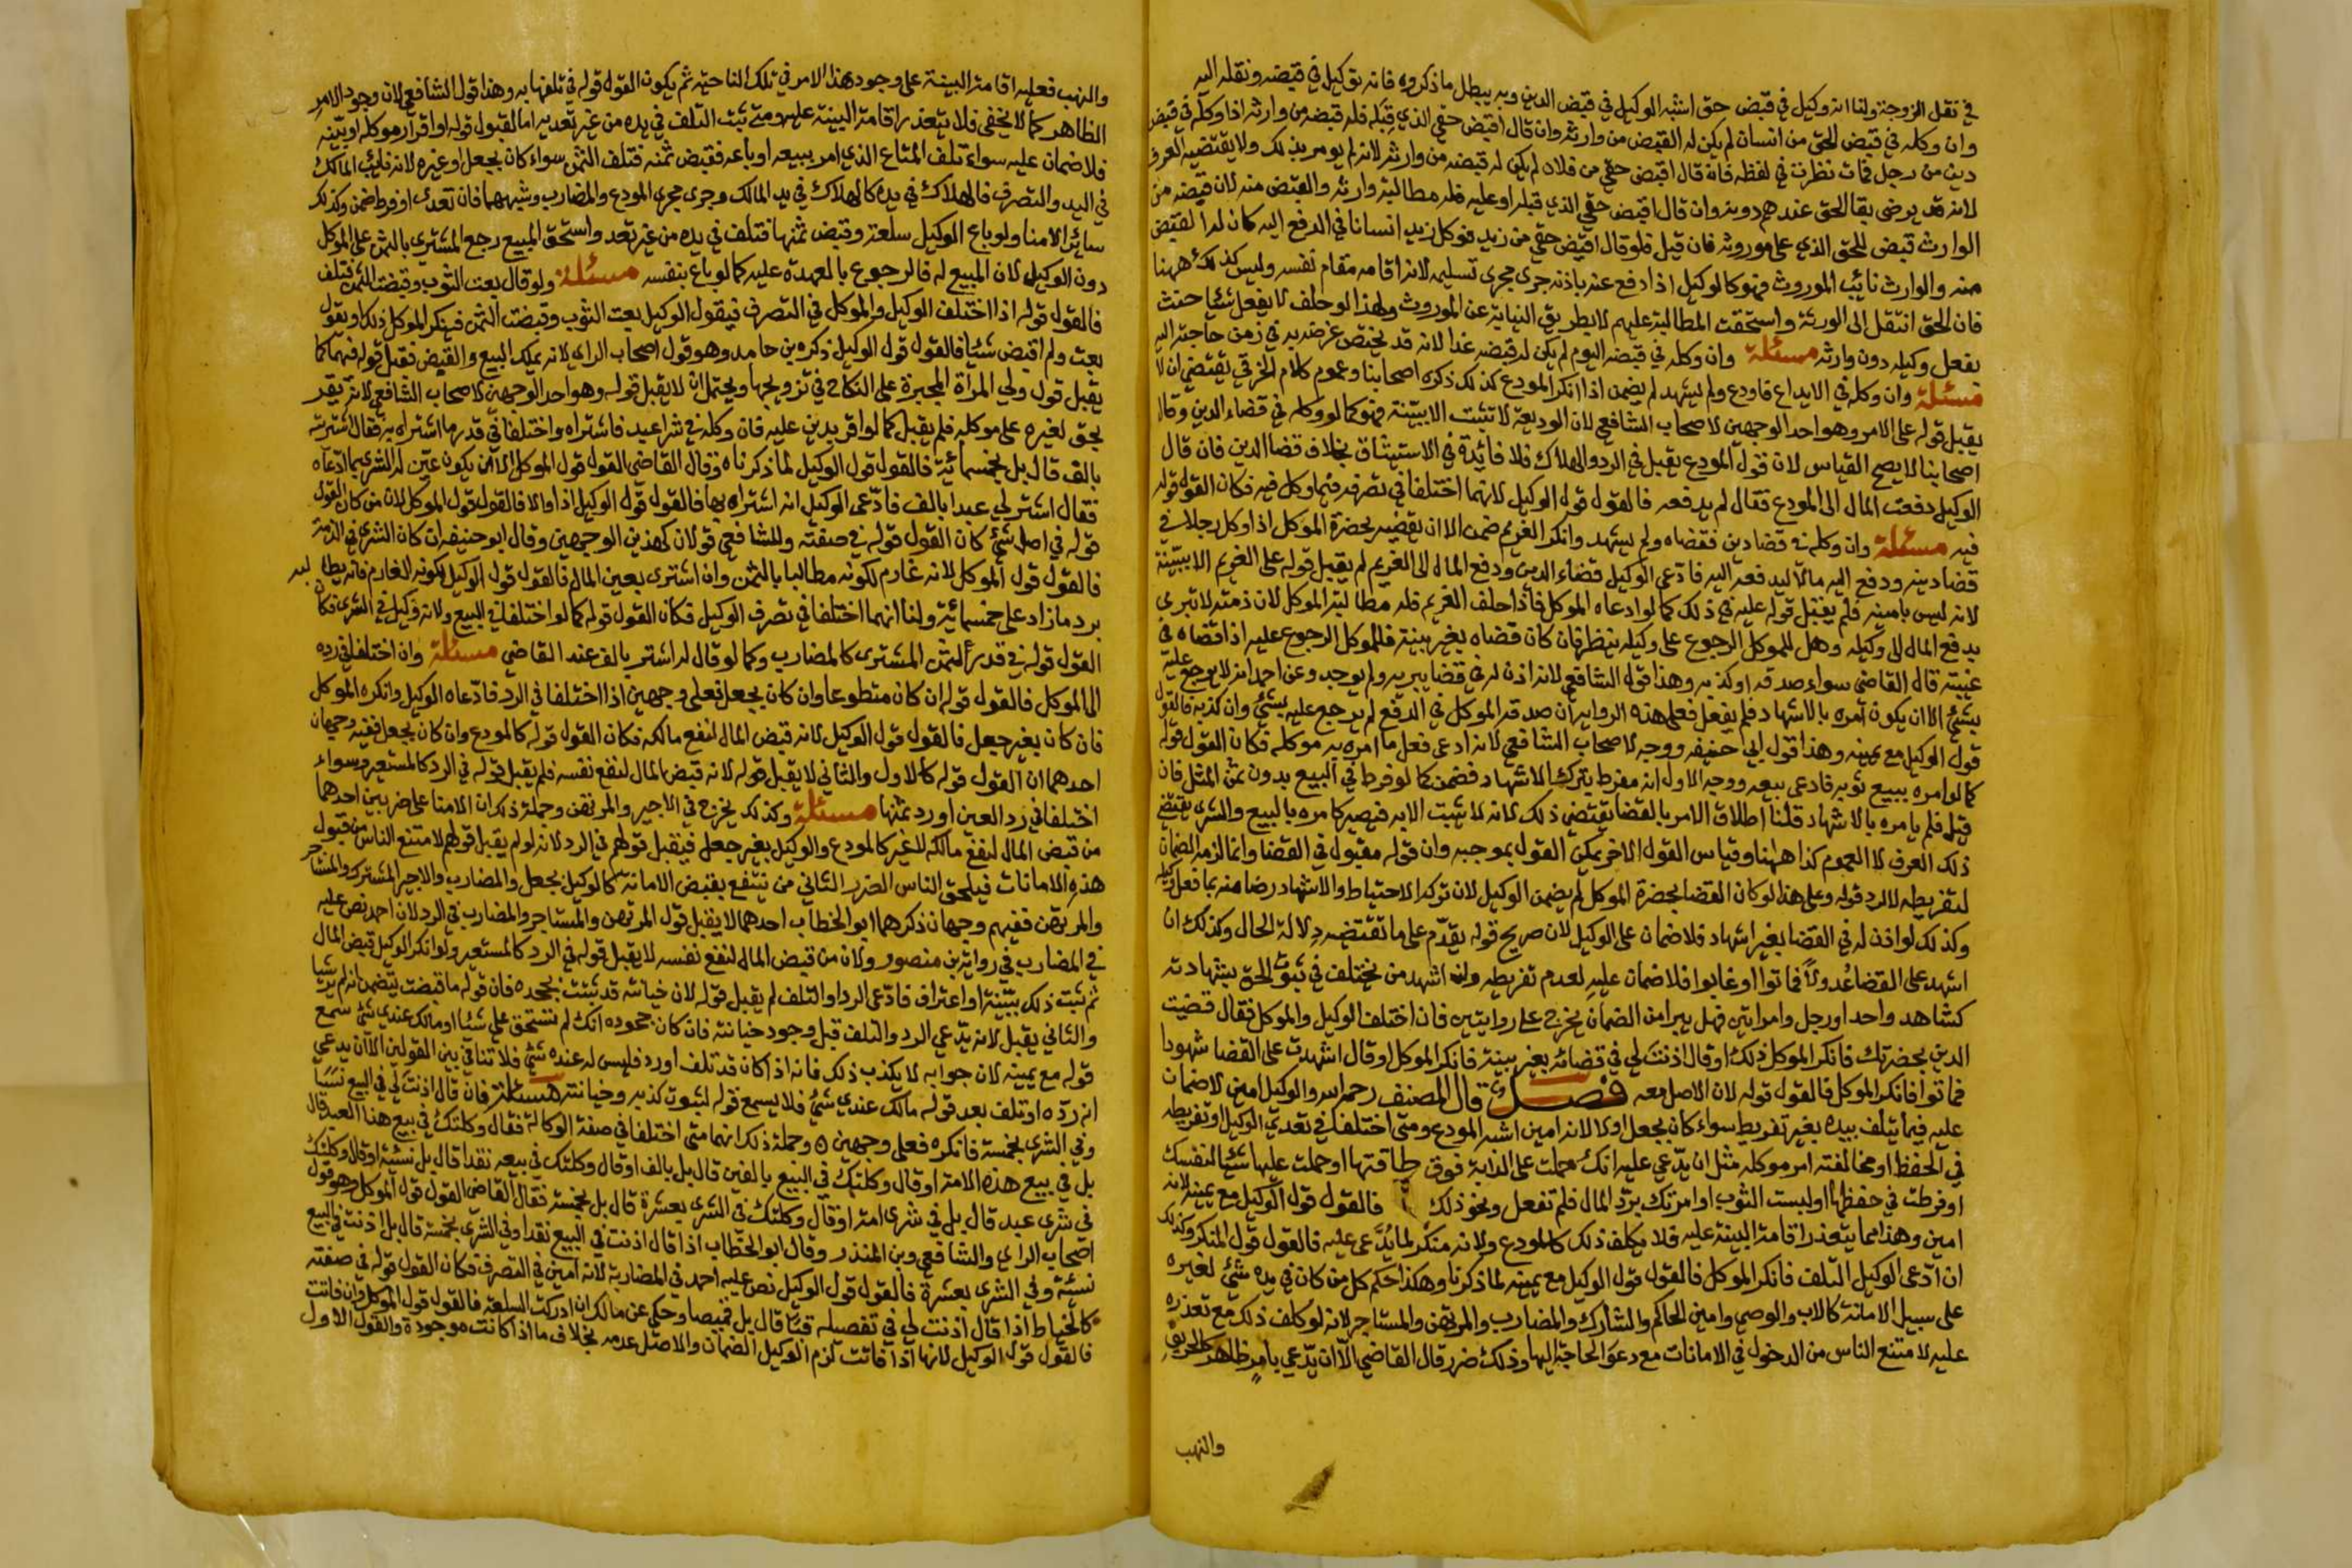 في نقل الزوجة ولنا انه وكيل في قبض حق اشبه الوكيل في قبض الدين وبه يبطل ما ذكروه فانه توكيل في قبضه ونقله اليه
وان وكله في قبض الحق من انسان لم يكن له القبض من وارثه وان قال اقبض حقي الذي قبله فله قبضه من وارثه اذا وكله في قبض
دين من رجل فمات نظرت في لفظه فان قال اقبض حقي من فلان لم يكن له قبضه من وارثه لانه لم يومر بذلك ولا يقتضيه العرف
لانه قد يرضى بقا الحق عندهم دونه وان قال اقبض حقي الذي قبله او عليه فله مطالبة وارثه والقبض منه لان قبضه من
الوارث قبض للحق الذي على موروثه فان قيل فلو قال اقبض حقي من زيد فوكل زيد انسانا في الدفع اليه كان له القبض
منه والوارث نائب الموروث فهو كالوكيل اذا دفع عنه باذنه جرى مجرى تسليمه لانه اقامه مقام نفسه وليس كذلك ههنا
فان الحق انتقل الى الورثة واستحقت المطالبة عليهم لا بطريق النيابة عن الموروث ولهذا لو حلف لا يفعل شيئا حنث
بفعل وكيله دون وارثه مسئلة وان وكله في قبضه اليوم لم يكن له قبضه غدا لانه قد يختص غرضه به في زمن حاجته اليه
مسئلة وان وكله في الايداع فاودع ولم يشهد لم يضمن اذا انكر المودع كذلك ذكره اصحابنا وعموم كلام الخرقي يقتضي ان لا
يقبل قوله على الامر وهو احد الوجهين لاصحاب الشافعي لان الوديعة لا تثبت الا ببينة فهو كما لو وكله في قضاء الدين وقال
اصحابنا لا يصح القياس لان قول المودع يقبل في الرد والهلاك فلا فائدة في الاستيثاق بخلاف قضا الدين فان قال
الوكيل دفعت المال الى المودع فقال لم يدفعه فالقول قول الوكيل لانهما اختلفا في تصرفه فيما وكل فيه فكان القول قوله
فيه مسئلة وان وكله في قضا دين فقضاه ولم يشهد وانكر الغريم ضمن الا ان يقضيه بحضرة الموكل اذا وكل رجلا في
قضا دينه ودفع اليه مالا ليدفعه اليه فادعى الوكيل قضاء الدين ودفع المال الى الغريم لم يقبل قوله على الغريم الا ببينة
لانه ليس بامينه فلم يقبل قوله عليه في ذلك كما لو ادعاه الموكل فاذا حلف الغريم فله مطالبة الموكل لان ذمته لا تبرى
بدفع المال الى وكيله وهل للموكل الرجوع على وكيله ينظر فان كان قضاه بغير بينة فللموكل الرجوع عليه اذا قضاه في
غيبته قال القاضي سواء صدقه او كذبه وهذا قول الشافعي لانه اذن له في قضا يبريه ولم يوجد وعن احمد انه لا يرجع عليه
بشيء الا ان يكون امره بالاشهاد فلم يفعل فعلى هذه الرواية ان صدقه الموكل في الدفع لم يرجع عليه بشيء وان كذبه فالقول
قول الوكيل مع يمينه وهذا قول ابي حنيفه ووجه لاصحاب الشافعي لانه ادعى فعل ما امره به موكله فكان القول قوله
كما لو امره ببيع ثوبه فادعى بيعه ووجه الاول انه مفرط بترك الاشهاد فضمن كما لو فرط في البيع بدون ثمن المثل فان
قيل فلم يامره بالاشهاد قلنا اطلاق الامر بالقضا يقتضي ذلك لانه لا يثبت الا به فيصير كامره بالبيع والشرى يقتضي
ذلك العرف لا العموم كذا ههنا وقياس القول الاخر يمكن القول بموجبه وان قوله مقبول في القضا وانما لزمه الضمان
لتفريطه لا لرد قوله وعلى هذا لو كان القضا بحضرة الموكل لم يضمن الوكيل لان تركه الاحتياط والاشهاد رضا منه بما فعل وكيله
وكذلك لو اذن له في القضا بغير اشهاد فلا ضمان على الوكيل لان صريح قوله يقدم على ما تقتضيه دلالة الحال وكذلك ان
اشهد على القضا عدولا فماتوا او غابوا فلا ضمان عليه لعدم تفريطه وان اشهد من يختلف في ثبوت الحق بشهادته
كشاهد واحد او رجل وامراتين فهل يبرا من الضمان يخرج على روايتين فان اختلف الوكيل والموكل فقال قضيت
الدين بحضرتك فانكر الموكل ذلك او قال اذنت لي في قضائه بغير بينة فانكر الموكل او قال اشهدت على القضا شهودا
فماتوا فانكر الموكل فالقول قوله لان الاصل معه فصل قال المصنف رحمه الله والوكيل امين لا ضمان
عليه فيما يتلف بيده بغير تفريط سواء كان بجعل او لا لانه امين اشبه المودع ومتى اختلفا في تعدي الوكيل او تفريطه
في الحفظ او مخالفته امر موكله مثل ان يدعي عليه انك حملت على الدابة فوق طاقتها او حملت عليها شيئا لنفسك
او فرطت في حفظها او لبست الثوب او امرتك برد المال فلم تفعل ونحو ذلك فالقول قول الوكيل مع يمينه لانه
امين وهذا مما يتعذر اقامة البينة عليه فلا يكلف ذلك كالمودع ولانه منكر لما يدعى عليه فالقول قول المنكر وكذلك
ان ادعى الوكيل التلف فانكر الموكل فالقول قول الوكيل مع يمينه لما ذكرنا وهكذا حكم كل من كان في يده شيء لغيره
على سبيل الامانة كالاب والوصي وامين الحاكم والشارك والمضارب والمرتهن والمستاجر لانه لو كلف ذلك مع تعذره
عليه لامتنع الناس من الدخول في الامانات مع دعو الحاجة اليها وذلك ضرر قال القاضي الا ان يدعي بامر ظاهر كالحريق
والنهب
والنهب فعليه اقامة البينة على وجود هذا الامر في تلك الناحية ثم يكون القول قوله في تلفها به وهذا قول الشافعي لان وجود الامر
الظاهر كما لا يخفى فلا يتعذر اقامة البينة عليه ومتى ثبت التلف في يده من غير تعديه اما لقبول قوله او اقرار موكله او بينه
فلا ضمان عليه سواء تلف المتاع الذي امر ببيعه او باعه فقبض ثمنه فتلف الثمن سواء كان بجعل او غيره لانه نائب المالك
في اليد والتصرف فالهلاك في يده كالهلاك في يد المالك وجرى مجرى المودع والمضارب وشبههما فان تعدى او فرط ضمن وكذلك
سائر الامنا ولو باع الوكيل سلعة وقبض ثمنها فتلف في يده من غير تعد واستحق المبيع رجع المشتري بالثمن على الموكل
دون الوكيل لان المبيع له فالرجوع بالعهدة عليه كما لو باع بنفسه مسئلة ولو قال بعت الثوب وقبضت الثمن فتلف
فالقول قوله اذا اختلف الوكيل والموكل في التصرف فيقول الوكيل بعت الثوب وقبضت الثمن فينكر الموكل ذلك او يقول
بعت ولم اقبض شيئا فالقول قول الوكيل ذكره بن حامد وهو قول اصحاب الراي لانه يملك البيع والقبض فقبل قوله فيهما كما
يقبل قول ولي المراة المجبرة على النكاح في تزويجها ويحتمل ان لا يقبل قوله وهو احد الوجهين لاصحاب الشافعي لانه يقر
بحق لغيره على موكله فلم يقبل كما لو اقر بدين عليه فان وكله في شرا عبد فاشتراه واختلفا في قدر ما اشتراه به فقال اشتريته
بالف قال بل بخمسمائة فالقول قول الوكيل لما ذكرناه وقال القاضي القول قول الموكل الا ان يكون عين له الشرى بما ادعاه
فقال اشتر لي عبدا بالف فادعى الوكيل انه اشتراه بها فالقول قول الوكيل اذا والا فالقول قول الموكل لان من كان القول
قوله في اصل شيء كان القول قوله في صفته وللشافعي قولان كهذين الوجهين وقال ابو حنيفه ان كان الشرى في الذمة
فالقول قول الموكل لانه غارم لكونه مطالبا بالثمن وان اشترى بعين المال فالقول قول الوكيل لكونه الغارم فانه يطالبه
برد ما زاد على خمسمائة ولنا انهما اختلفا في تصرف الوكيل فكان القول قوله كما لو اختلفا في البيع ولانه وكيل في الشرى فكان
القول قوله في قدر الثمن المشترى كالمضارب وكما لو قال له اشتر بالف عند القاضي مسئلة وان اختلفا في رده
الى الموكل فالقول قوله ان كان متطوعا وان كان بجعل فعلى وجهين اذا اختلفا في الرد فادعاه الوكيل وانكره الموكل
فان كان بغير جعل فالقول قول الوكيل لانه قبض المال لنفع مالكه فكان القول قوله كالمودع وان كان بجعل ففيه وجهان
احدهما ان القول قوله كالاول والثاني لا يقبل قوله لانه قبض المال لنفع نفسه فلم يقبل قوله في الرد كالمستعير وسواء
اختلفا في رد العين او رد ثمنها مسئلة وكذلك يخرج في الاجير والمرتهن وجملة ذلك ان الامنا على ضربين احدهما
من قبض المال لنفع مالكه لا غير كالمودع والوكيل بغير جعل فيقبل قولهم في الرد لانه لو لم يقبل قولهم لامتنع الناس من قبول
هذه الامانات فيلحق الناس الضرر الثاني من ينتفع بقبض الامانه كالوكيل بجعل والمضارب والاجير المشترك والمستاجر
والمرتهن ففيهم وجهان ذكرهما ابو الخطاب احدهما لا يقبل قول المرتهن والمستاجر والمضارب في الرد لان احمد نص عليه
في المضارب في رواية بن منصور ولان من قبض المال لنفع نفسه لا يقبل قوله في الرد كالمستعير ولو انكر الوكيل قبض المال
ثم ثبت ذلك ببينة او اعتراف فادعى الرد او التلف لم يقبل قوله لان خيانته قد ثبتت بجحده فان قوله ما قبضت يتضمن انه لم يرد شيا
والثاني يقبل لانه يدعي الرد والتلف قبل وجود خيانته فان كان جحوده انك لم تستحق علي شيئا او مالك عندي شيء سمع
قوله مع يمينه لان جوابه لا يكذب ذلك فانه اذا كان قد تلف او رد فليس له عنده شيء فلا تنافي بين القولين الا ان يدعي
انه رده او تلف بعد قوله مالك عندي شيء فلا يسمع قوله لثبوت كذبه وخيانته مسئلة فان قال اذنت لي في البيع نسيئا
وفي الشرى بخمسة فانكره فعلى وجهين وجملة ذلك انهما متى اختلفا في صفة الوكالة فقال وكلتك في بيع هذا العبد قال
بل في بيع هذه الامة او قال وكلتك في البيع بالفين قال بل بالف او قال وكلتك في بيعه نقدا قال بل نسيئة او قال وكلتك
في شرى عبد قال بل في شرى امة او قال وكلتك في الشرى بعشرة قال بل بخمسة فقال القاضي القول قول الموكل وهو قول
اصحاب الراي والشافعي وبن المنذر وقال ابو الخطاب اذا قال اذنت في البيع نقدا وفي الشرى بخمسة قال بل اذنت في البيع
نسيئة وفي الشرى بعشرة فالقول قول الوكيل نص عليه احمد في المضاربة لانه امين في التصرف فكان القول قوله في صفته
كالخياط اذا قال اذنت لي في تفصيله قبا قال بل قميصا وحكي عن مالك ان ادركت السلعة فالقول قول الموكل وان فاتت
فالقول قول الوكيل لانها اذا فاتت لزم الوكيل الضمان والاصل عدمه بخلاف ما اذا كانت موجودة والقول الاول